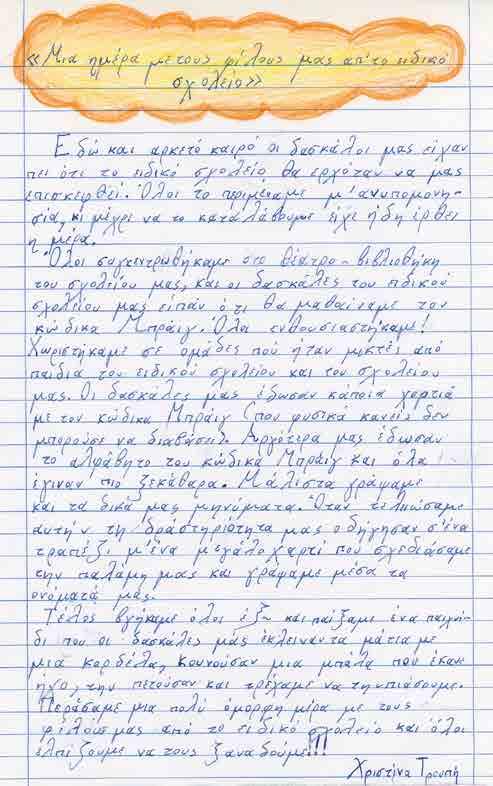 «Μια ημέρα με τους φίλους μας απ'το ειδικό
σχολείο»
Εδώ και αρκετό καιρό οι δασκάλοι μας είχαν
πει ότι το ειδικό σχολείο θα ερχόταν να μας
επισκεφθεί. Όλοι το περιμέναμε μ'ανυπομονη-
σία, κι μέχρι να το καταλάβουμε είχε ήδη έρθει
η μέρα.
Όλοι συγκεντρωθήκαμε στο θέατρο-βιβλιοθήκη
του σχολείου μας, και οι δασκάλες του ειδικού
σχολείου μας είπαν ότι θα μαθαίναμε τον
κώδικα Μπράιγ. Όλοι ενθουσιαστήκαμε!
Χωριστήκαμε σε ομάδες πού ήταν μικτές από
παιδιά του ειδικού σχολείου και του σχολείου
μας. Οι δασκάλες μας έδωσαν κάποια χαρτιά
με τον κώδικα Μπράιγ (που φυσικά κανείς δεν
μπορούσε να διαβάσει). Αργότερα μας έδωσαν
το αλφάβητο του κώδικα Μπράιγ και όλα
έγιναν πιο ξεκάθαρα. Μάλιστα γράψαμε
και τα δικά μας μηνύματα. Όταν τελειώσαμε
αυτήν τη δράστηριότητα μας οδήγησαν σ'ένα
τραπέζι μ'ένα μεγάλο χαρτί που σχεδιάσαμε
την παλάμη μας και γράψαμε μέσα τα
ονόματά μας.
Τέλος βγήκαμε όλοι έξω και παίξαμε ένα παιχνί-
δι που οι δασκάλες μάς έκλειναν τα μάτια με
μια κορδέλα, κουνούσαν μια μπάλα που έκανε
ήχο, την πετούσαν και τρέχαμε να την πιάσουμε.
Περάσαμε μια πολύ όμορφη μέρα με τους
φίλους μας από το ειδικό σχολείο και όλοι
ελπίζουμε να τους ξαναδούμε!!!
Χριστίνα Τρουπή